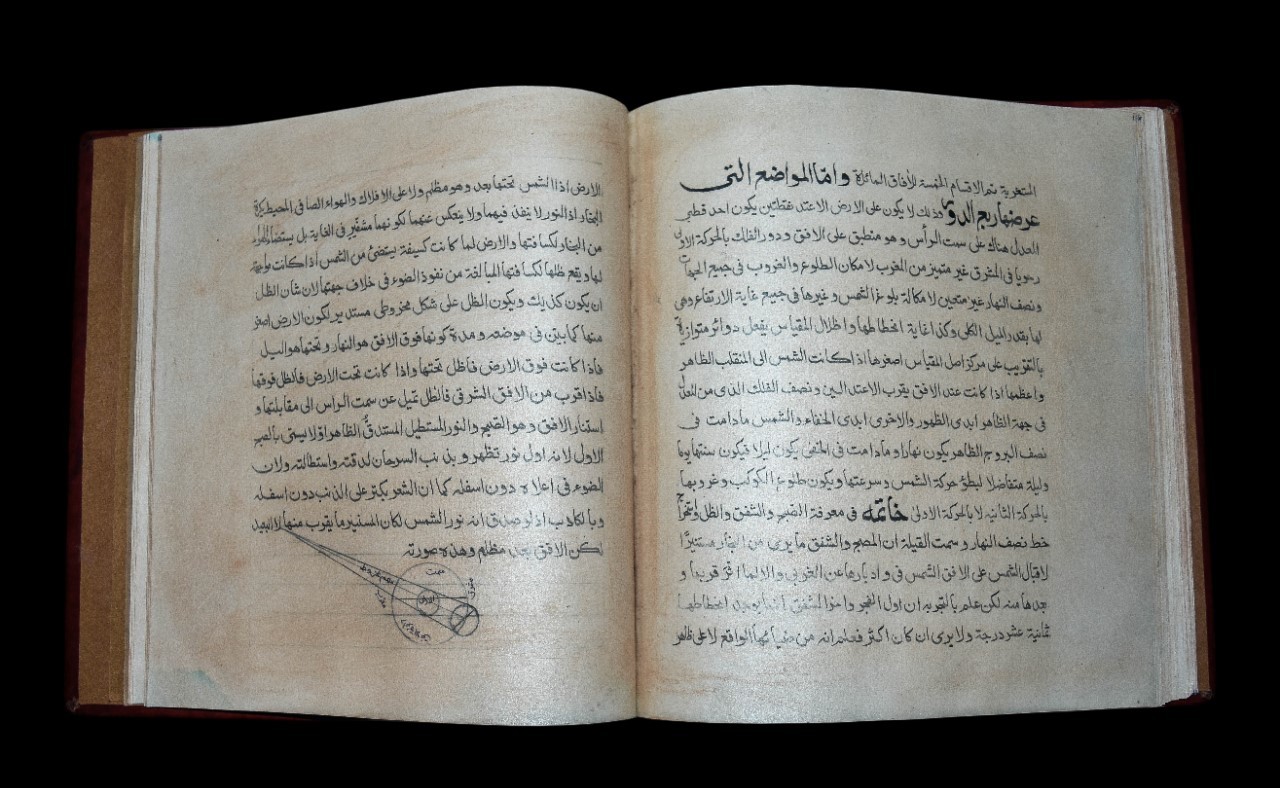 واما المواضع التى
عرضها ربع الدور وذلك لا يكون على الارض الاعند نقطتين يكون احد قطبي
المعدل هناك على سمت الرأس وهو منطبق على الافق ودور الفلك بالحركة الاولى
رحويا فى المشرق غير متميز من المغرب لا مكان الطلوع والغروب فى جميع الجهات
ونصف النهار غير متعين بلوغ الشمس وغيرها فى جميع غاية الارتفاع وهى
لها بقدر الميل الكلى وكذا غاية انحطاطها واظلال المقياس يفعل دوائر متوازية
بالتقريب على مركز اصل المقياس اصغرها اذا كانت الشمس الى المنقلب الظاهر
واعظمها اذا كانت عند الافق بقرب الاعتدالين ونصف الفلك الذى من المعدل
فى جهة الظاهر ابدى الظهور والاخرى ابدى الخفاء والشمس مادامت فى
نصف البروج الظاهر يكون نهارا وما دامت فى يكون ليلا فيكون سنتها يوما
وليلة متفاضلا لبطؤ حركة الشمس وسرعتها ويكون طلوع الكوكب وغروبها
بالحركة الثانية لا بالحركة الاولى خاتمه فى معرفة الصبح والشفق والظل
خط نصف النهار وسمت القبلة ان الصبح والشفق ما يرى من البخار مستنيرا
لاقبال الشمس على الافق الشرقى وادبارها عن الغربى
بعدها منه لكن علم بالتجربه ان اول الفجر واخر الشفق انحطاطها
ثمانية عشر درجة ولا يرى ان كان اكثر فعلم انه من الواقع لا على ظاهر
الارض اذ الشمس تحتها بعد وهو مظلم ولا على الافلاك والهواء الصافى المحيط بكرة
البخار اذ النور لا ينفذ فيهما ولا ينعكس عنهما لكونهما مشفين فى الغاية بل
من البخار لكسافتها والارض لما كانت كسيفة يستضئ من الشمس اذا كانت مواجهة
لها ويقع ظلها لكسافتها المبالغة من نفوذ الضوء فى خلاف جهتها لان شان الظل
ان يكون كذلك ويكون الظل على شكل مخروطى مستدير لكون الارض اصغر
منها كما بين فى موضعه ومدة كونها فوق الافق هو النهار وتحتها هو الليل
فاذا كانت فوق الارض فالظل تحتها واذا كانت تحت الارض فالظل فوقها
فاذا قرب من الافق الشرقى فالظل تميل عن سمت الراس الى مقابلتها و
استنار الافق وهو الصبح والنور المستطيل المستدق الظاهر اولا يسمى بالصبح
الاول لانه اول نور تظهر وبذنب السرحان لدقته واستطالته ولان
الضوء فى اعلاه دون اسفله كما ان الشعر يكثر على الذنب دون اسفله
وبالكاذب اذ لو صدق انه نور الشمس لكان المستنير ما يقرب منها لا البعيد
لكن الافق بعد مظلم وهذه صورته